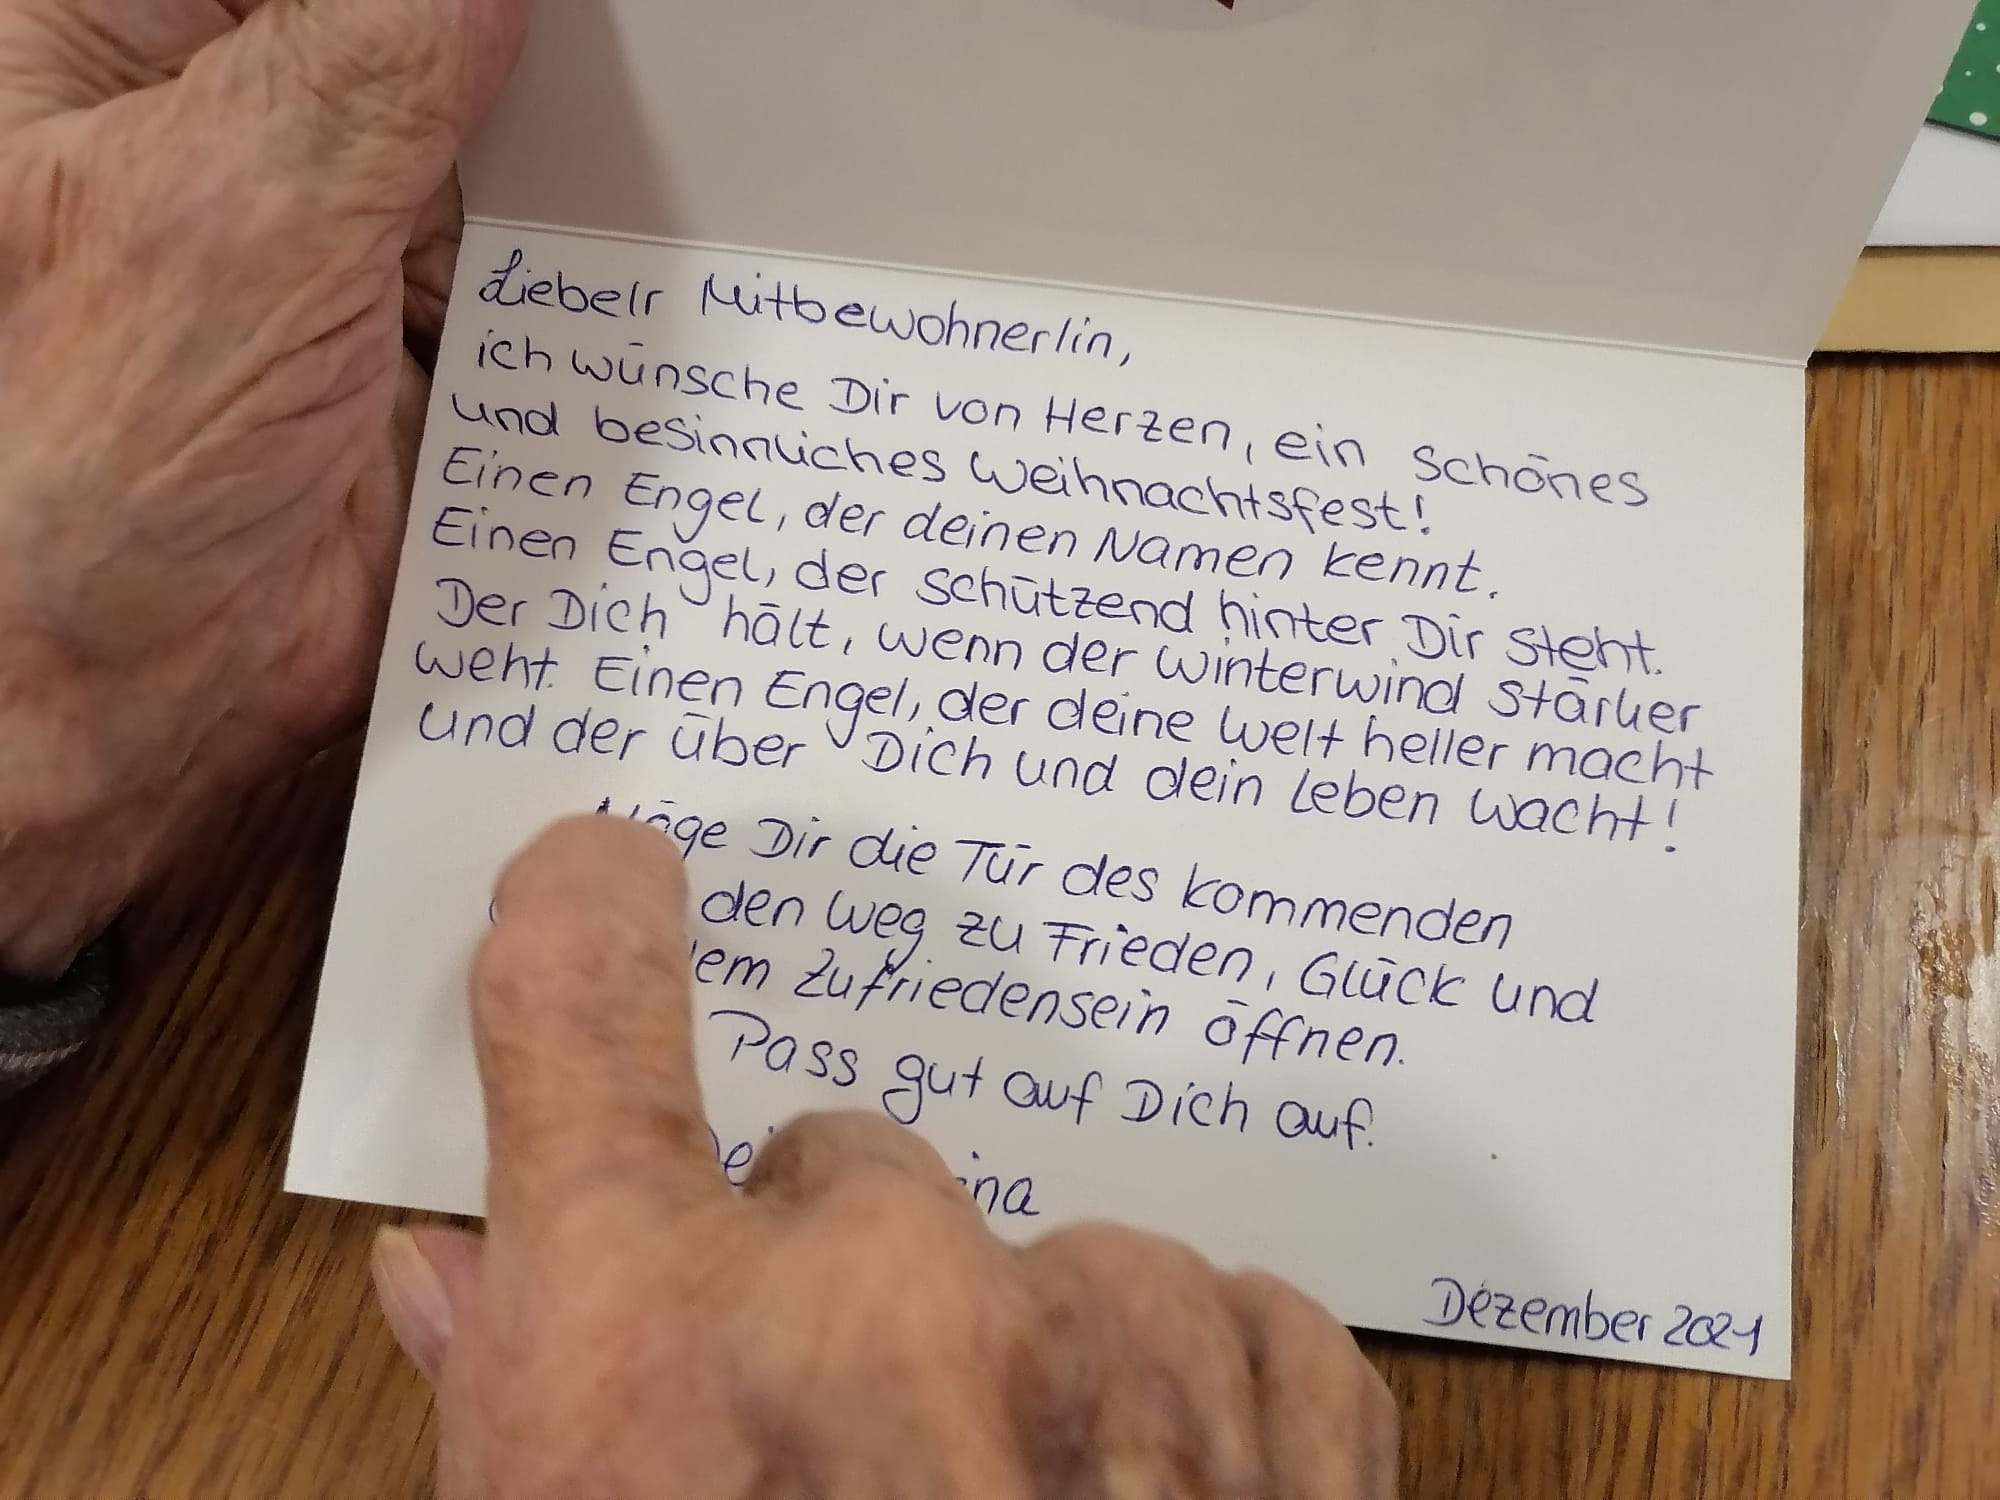 Liebe/r Mitbewohner/in,
ich wünsche Dir von Herzen, ein schönes
und besinnliches Weihnachtsfest!
Einen Engel, der deinen Namen kennt.
Einen Engel, der schützend hinter Dir steht.
Der Dich hält, wenn der Winterwind stärker
weht. Einen Engel, der deine Welt heller macht
und der über Dich und dein Leben wacht!
Möge Dir die Tür des kommenden
den Weg zu Frieden, Glück und
Zufriedensein öffnen.
Pass gut auf Dich auf.
Dezember 2021